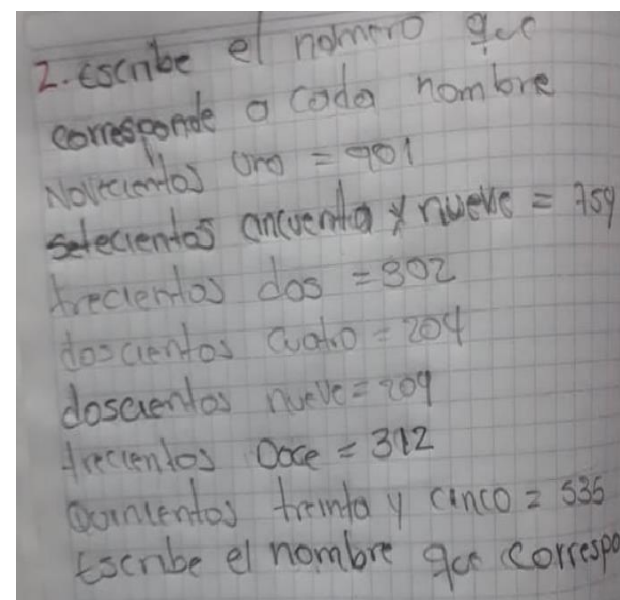 2. Escribe el nomero que
corresponde a cada nombre
Novecientos uno = 901
setecientos cincuenta y nueve = 759
trecientos dos = 302
doscientos cuatro = 204
doscientos nueve = 209
trecientos Doce = 312
Quinientos treinta y cinco = 535
Escribe el nombre que correspo